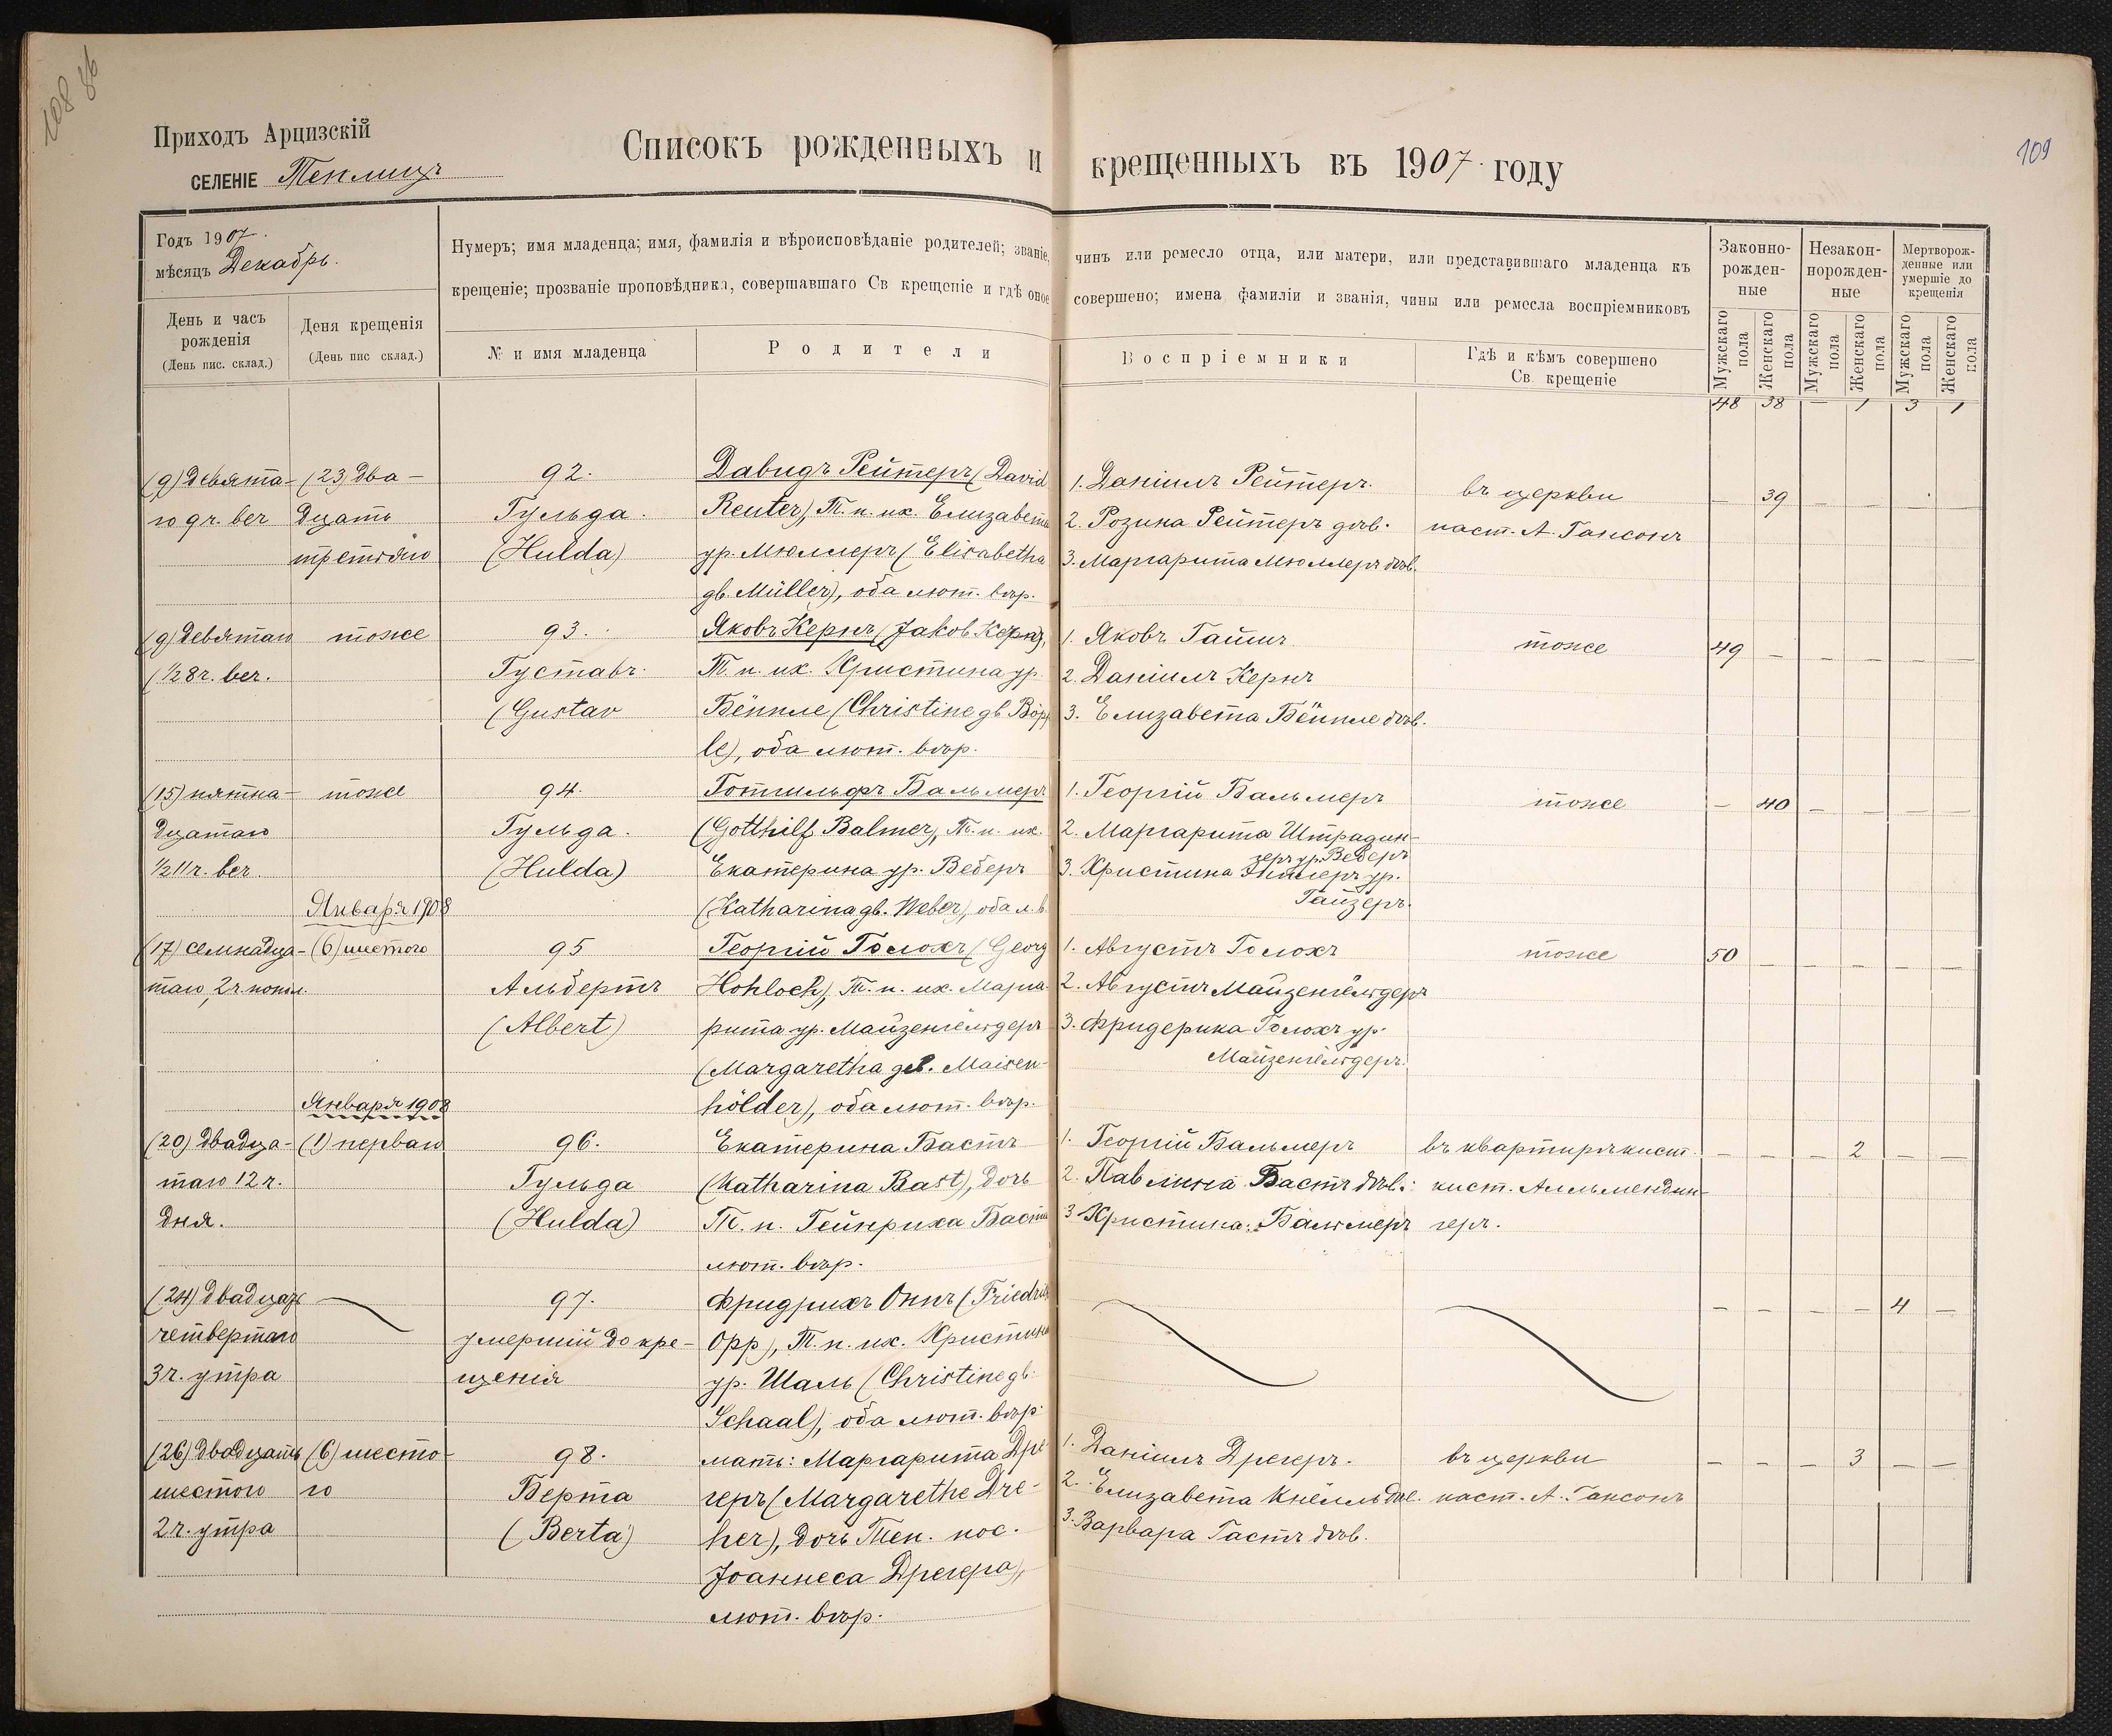 108 86
109
Приходъ Арцизскій
СЕЛЕНІЕ Теплицъ
Списокъ рожденныхъ и крещенныхъ въ 1907 году
Годъ 1907.
мѣсяцъ Декабрь.
Нумеръ; имя младенца; имя, фамилія и вѣроисповѣданіе родителей; званіе, чинъ или ремесло отца, или матери, или представившаго младенца къ
крещеніе; прозваніе проповѣдника, совершавшаго Св крещеніе и гдѣ оное совершено; имена, фамиліи и званія, чины или ремесла воспріемниковъ
Законно-
рожден-
ные
Незакон-
норожден-
ные
Мертворож-
денные или
умершіе до
крещенія
День и часъ
рожденія
(День пис. склад.)
Деня крещенія
(День пис склад.)
№ и имя младенца
Родители
Воспріемники
Гдѣ и кѣмъ совершено
Св. крещеніе
Мужскаго пола
Женскаго пола
Мужскаго пола
Женскаго пола
Мужскаго пола
Женскаго пола
48 38 — 1 3 1
(9) девята-
го 9 ч. веч
(23) два-
дцать
третьяго
92.
Гульда.
(Hulda)
Давидъ Рейтеръ (David
Reuter), Т. п. их. Елизавета
ур. Мюллеръ (Elisabetha
gb. Müller), оба лют. вѣр.
1. Даніилъ Рейтеръ.
2. Розина Рейтеръ дѣв.
3. Маргарита Мюллеръ дѣв.
въ церкви
паст. А. Гансонъ
— 39 — — — —
(9) девятаго
(½8 ч. веч.
тоже
93.
Густавъ.
(Gustav
Яковъ Кернъ (Jakob Kern),
Т. п. их. Христина ур.
Бёппле (Christine gb Böpp
le), оба лют. вѣр.
1. Яковъ Гаишъ
2. Даніилъ Кернъ
3. Елизавета Бёппле дѣв.
тоже
49 — — — — —
(15) пятна-
дцатаго
½11 ч. веч.
тоже
94.
Гульда.
(Hulda)
Готгильфъ Бальмеръ
(Gotthilf Balmer), Т. п. их.
Екатерина ур. Веберъ
(Katharina gb. Weber), оба л. в.
1. Георгій Бальмеръ
2. Маргарита Штрадин-
геръ ур. Веберъ
3. Христина ур.
Гайзеръ.
тоже
— 40 — — — —
Января 1908
(17) семнадца-
таго, 2 ч. попол.
(6) шестого
95
Альбертъ
(Albert)
Георгій Голохъ (Georg
Hohloch), Т. п. их. Марга-
рита ур. Майзенгёльдеръ
(Margaretha geb. Maisen-
hölder), оба лют. вѣр.
1. Августъ Голохъ
2. Августъ Майзенгёльдеръ
3. Фридерика Голохъ ур.
Майзенгёльдеръ.
тоже
50 — — — — —
Января 1908
(20) двадца-
таго 12 ч.
дня.
(1) перваго
96.
Гульда
(Hulda)
Екатерина Бастъ
(Katharina Bast), дочь
Т. п. Гейнриха Баста
лют. вѣр.
1. Георгій Бальмеръ
2. Павлина Бастъ дѣв.
3 Христина Бальмеръ
въ квартирѣ кист.
кист. Алльмендин-
геръ.
— — — 2 — —
(24) двадцать
четвертаго
3 ч. утра
97.
умершій до кре-
щенія
Фридрихъ Оппъ (Friedrich
Opp), Т. п. их. Христина
ур. Шаль (Christine gb.
Schaal), оба лют. вѣр.
— — — — 4 —
(26) двадцать
шестого
2 ч. утра
(6) шесто-
го
98.
Берта
(Berta)
мать: Маргарита Дре-
геръ (Margarethe Dre-
her), дочь Теп. пос.
Іоаннеса Дрегера),
лют. вѣр.
1. Даніилъ Дрегеръ.
2. Елизавета Кнёлль дѣв.
3. Варвара Гастъ дѣв.
въ церкви
паст. А. Гансонъ
— — — 3 — —